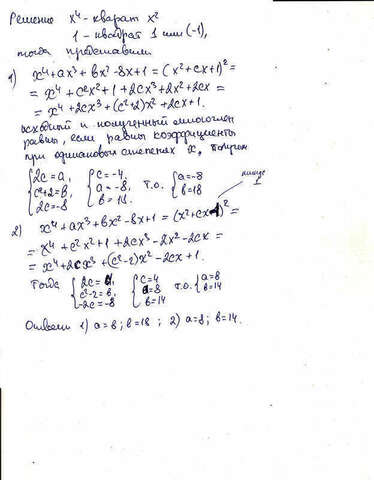 Решение x⁴ - квадрат x²
1 - квадрат 1 или (-1),
тогда представим
1) x⁴+ax³+bx²-8x+1=(x²+cx+1)²=
=x⁴+c²x²+1+2cx³+2x²+2cx=
=x⁴+2cx³+(c²+2)x²+2cx+1.
исходный и полученный многочлен
равны, если равны коэффициенты
при одинаковых степенях x, получим
{2c=a, {c=-4, т.о. {a=-8
c²+2=b, a=-8, b=18
2c=-8 b=18.
минус 1
2) x⁴+ax³+bx²-8x+1=(x²+cx-1)²=
=x⁴+c²x²+1+2cx³-2x²-2cx=
=x⁴+2cx³+(c²-2)x²-2cx+1.
Тогда {2c=a, {c=4 т.о. {a=8
c²-2=b, a=8 b=14
-2c=-8 b=14
Ответ 1) a=8; b=18; 2) a=8; b=14.